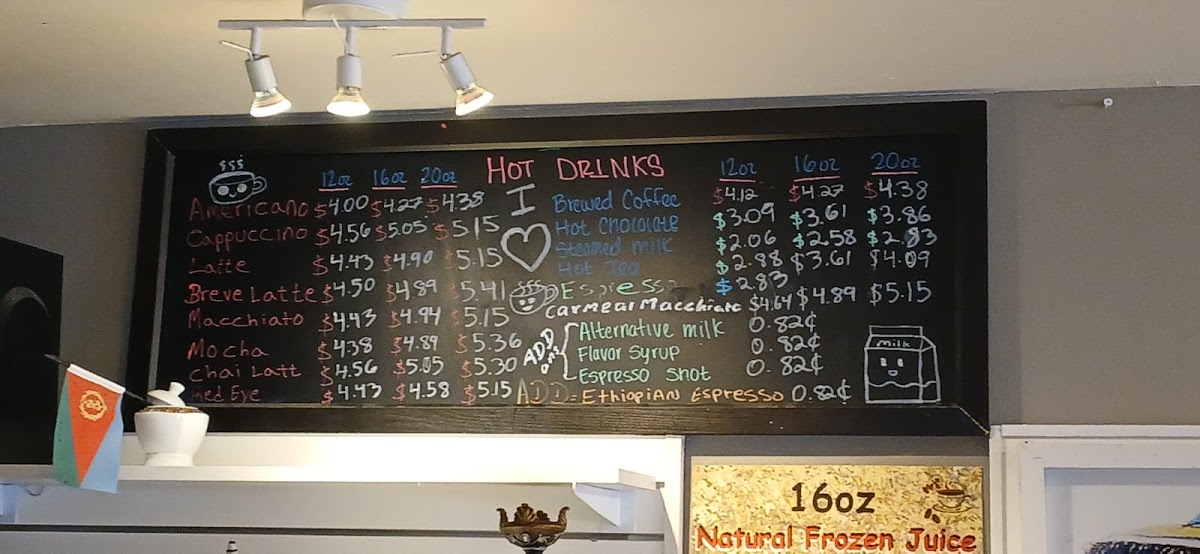 $$$
12oz 16oz 20oz
Americano $4.00 $4.27 $4.38
Cappuccino $4.56 $5.05 $5.15
Latte $4.43 $4.90 $5.15
Breve Latte $4.50 $4.89 $5.41
Macchiato $4.43 $4.94 $5.15
Mocha $4.38 $4.89 $5.36
Chai Latt $4.56 $5.05 $5.30
Red Eye $4.43 $4.58 $5.15
HOT DRINKS
I
12oz 16oz 20oz
Brewed Coffee $4.12 $4.27 $4.38
Hot Chocolate $3.09 $3.61 $3.86
Steamed milk $2.06 $2.58 $2.83
Hot Tea $2.88 $3.61 $4.09
Espresso $2.83
Carmear Macchiato $4.64 $4.89 $5.15
ADD
ons
Alternative milk 0.82¢
Flavor Syrup 0.82¢
Espresso Shot 0.82¢
ADD- Ethiopian Espresso 0.82¢
Milk
16oz
Natural Frozen Juice